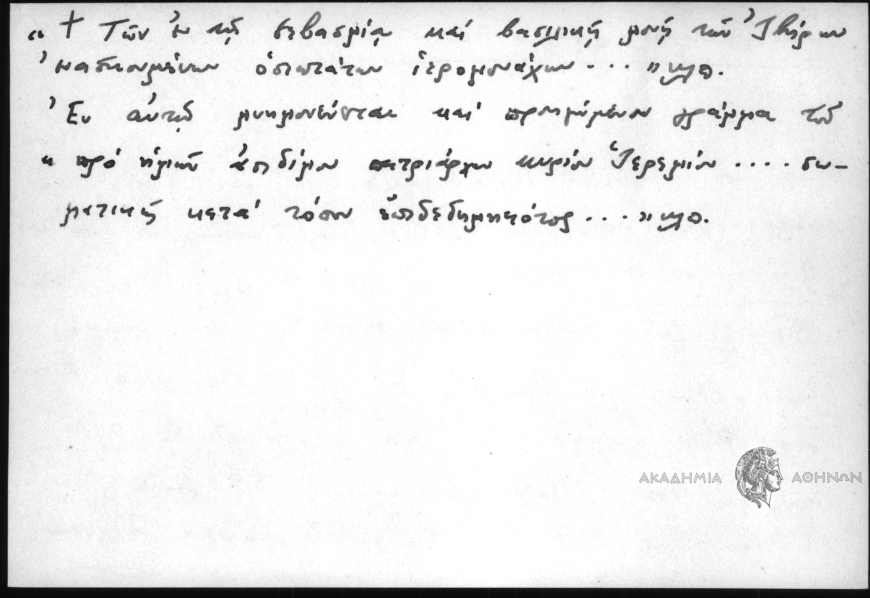 « † Τῶν ἐν τῇ σεβασμίᾳ καὶ βασιλικῇ μονῇ τῶν Ἰβήρων
ἐνασκουμένων ὁσιωτάτων ἱερομονάχων . . . » κλπ.
Ἐν αὐτῷ μνημονεύεται καὶ προηγούμενον γράμμα τοῦ
« πρὸ ἡμῶν ἀοιδίμου πατριάρχου κυρίου Ἱερεμίου . . . . σω-
ματικῶς κατὰ τόπον ἐπιδεδημηκότος . . . » κλπ.
ΑΚΑΔΗΜΙΑ ΑΘΗΝΩΝ